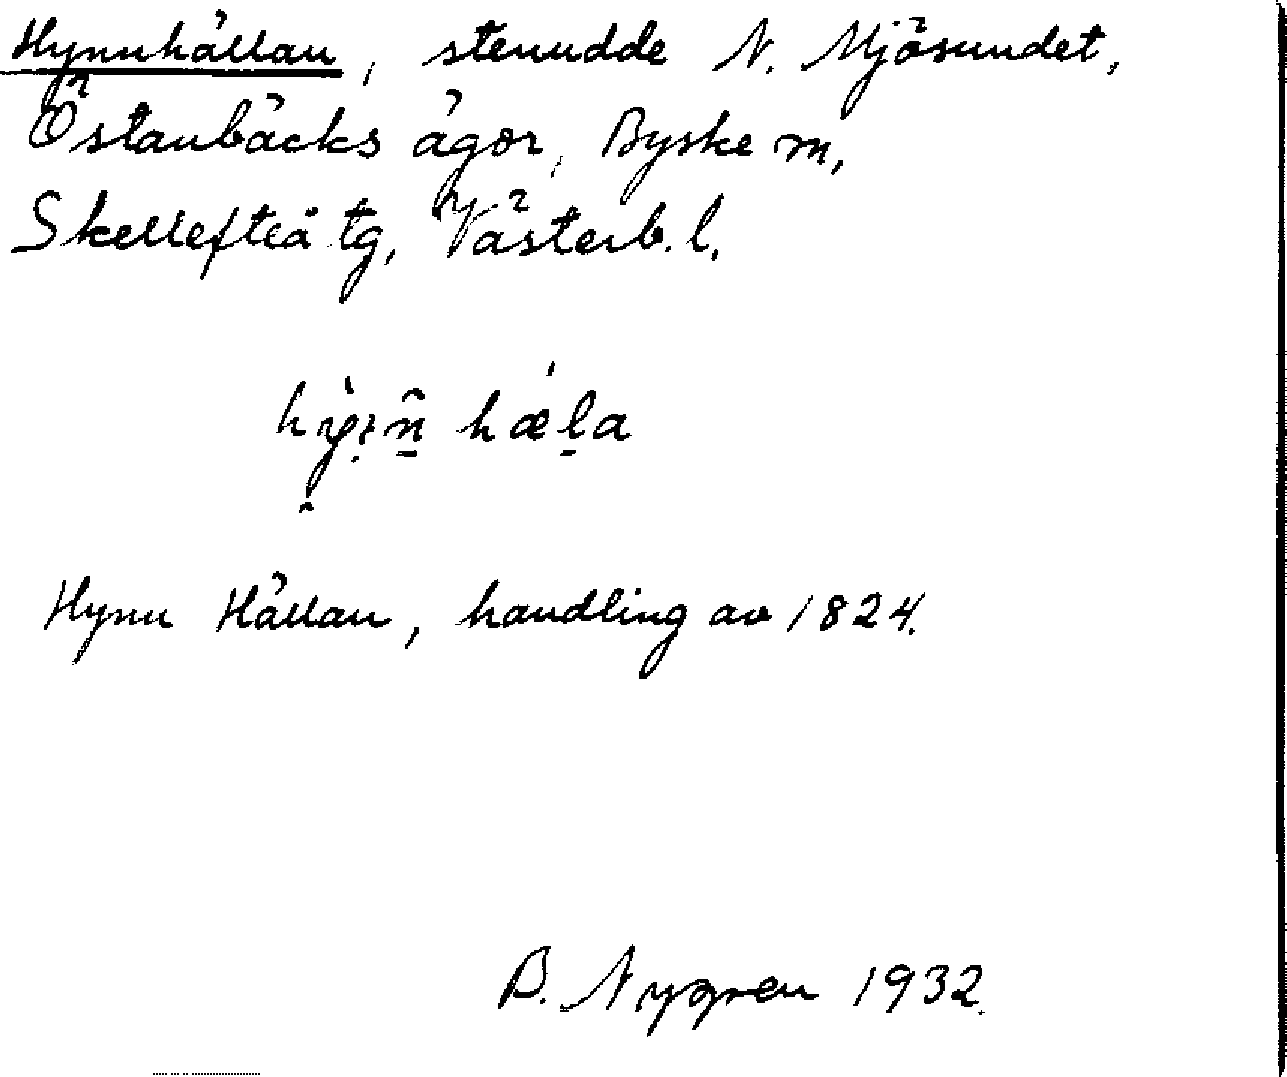 Hynnhällan, stenudde N. Mjösundet,
Östanbäcks ägor, Byske sn,
Skellefteå tg, Västerb. l.
hæla
Hynn Hällan, handling av 1824.
B. Nygren 1932.